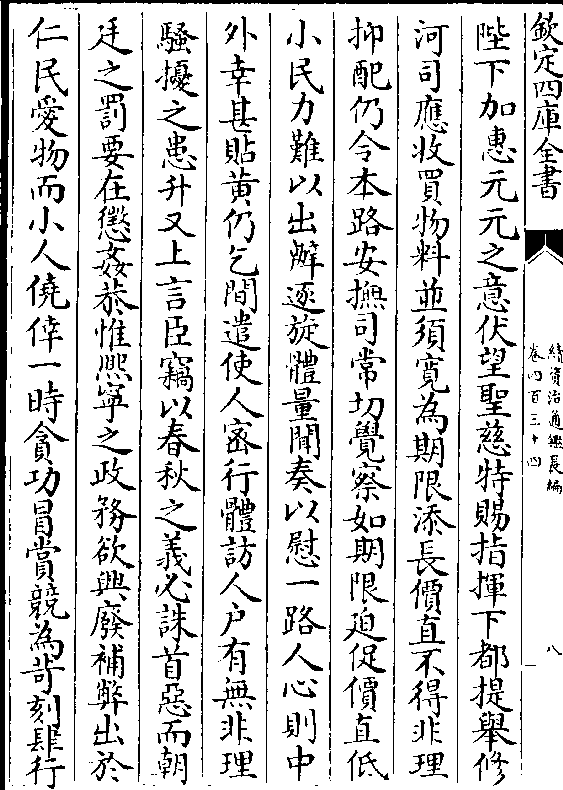 欽定四庫全書
續資治通鑑長編
卷四百三十四
八
陛下加惠元元之意伏望聖慈特賜指揮下都提舉修
河司應收買物料並須寛為期限添長價直不得非理
抑配仍令本路安撫司常切覺察如期限迫促價直低
小民力難以出辦逐旋體量聞奏以慰一路人心則中
外幸甚貼黄仍乞間遣使人宻行體訪人户有無非理
騷擾之患升又上言臣竊以春秋之義必誅首惡而朝
廷之罰要在懲姦恭惟熙寧之政務欲興廢補弊出於
仁民愛物而小人僥倖一時貪功冒賞競為苛刻肆行